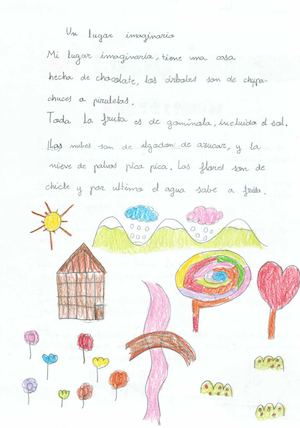 Un lugar imaginario
Mi lugar imaginario, tiene una casa
hecha de chocolate, los árboles son de chupa-
chuces o piruletas.
Toda la fruta es de gominola, incluido el sol.
Las nubes son de algodon de azucar, y la
nieve de polvos pica pica. Las flores son de
chicle y por ultimo el agua sabe a fresa.